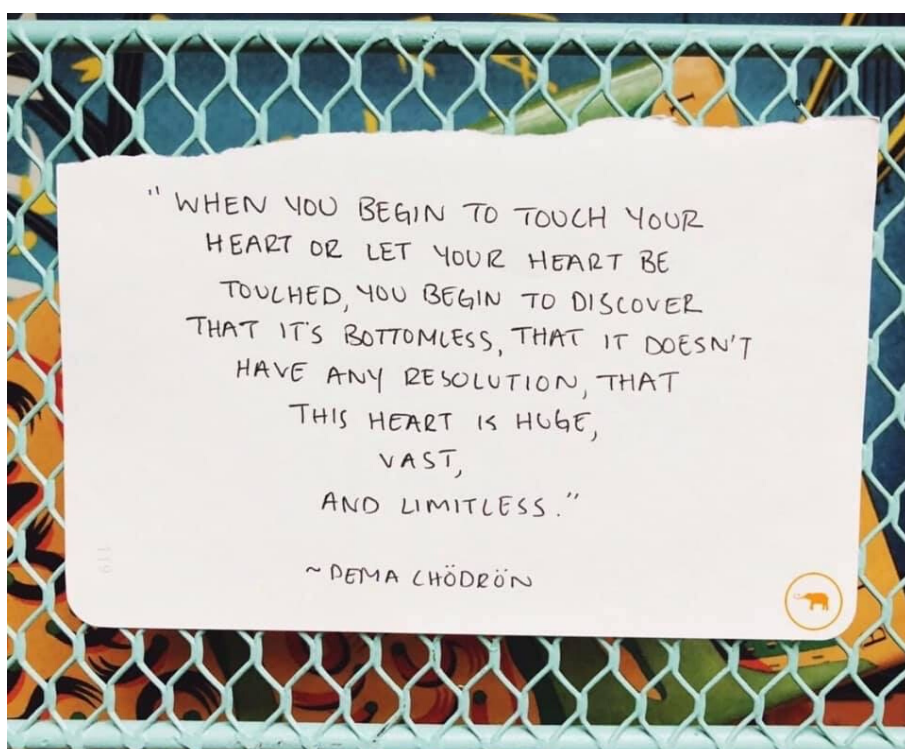 "WHEN YOU BEGIN TO TOUCH YOUR
HEART OR LET YOUR HEART BE
TOUCHED, YOU BEGIN TO DISCOVER
THAT IT'S BOTTOMLESS, THAT IT DOESN'T
HAVE ANY RESOLUTION, THAT
THIS HEART IS HUGE,
VAST,
AND LIMITLESS."
~PEMA CHÖDRÖN
119